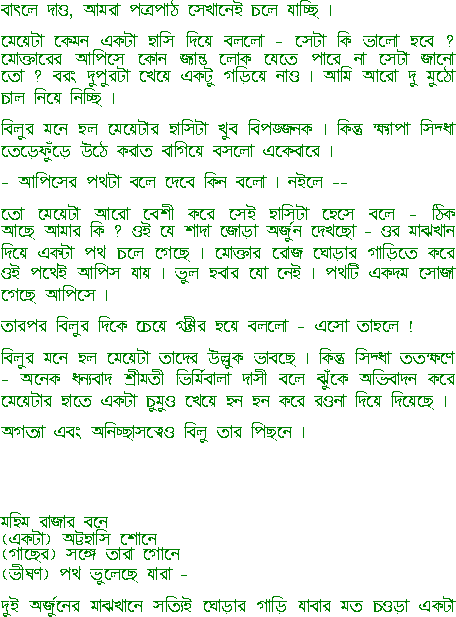 বাৎলে দাও, আমরা পত্রপাঠ সেখানেই চলে যাচ্ছি ।
মেয়েটা কেমন একটা হাসি দিয়ে বললো - সেটা কি ভালো হবে ?
মোক্তারের আপিসে কোন জ্যান্ত লোক যেতে পারে না সেটা জানো
তো ? বরং দুপুরটা খেয়ে একটু গড়িয়ে নাও । আমি আরো দু মুঠো
চাল নিয়ে নিচ্ছি ।
বিলুর মনে হল মেয়েটার হাসিটা খুব বিপজ্জনক । কিন্তু ক্ষ্যাপা সিদ্ধা
তেড়েফুঁড়ে উঠে করাত বাগিয়ে বসলো একেবারে ।
- আপিসের পথটা বলে দেবে কিন বলো । নইলে --
তো মেয়েটা আরো বেশী করে সেই হাসিটা হেসে বলে - ঠিক
আছে আমার কি ? ওই যে শাদা জোড়া অর্জুন দেখছো - ওর মাঝখান
দিয়ে একটা পথ চলে গেছে । মোক্তার রোজ ঘোড়ার গাড়িতে করে
ওই পথেই আপিস যায় । ভুল হবার যো নেই । পথটি একদম সোজা
গেছে আপিসে ।
তারপর বিলুর দিকে চেয়ে গম্ভীর হয়ে বললো - এসো তাহলে !
বিলুর মনে হল মেয়েটা তাদের উল্লুক ভাবছে । কিন্তু সিদ্ধা ততক্ষণে
- অনেক ধন্যবাদ শ্রীমতী ভির্মিবালা দাসী বলে ঝুঁকে অভিবাদন করে
মেয়েটার হাতে একটা চুমুও খেয়ে হন হন করে রওনা দিয়ে দিয়েছে ।
অগত্যা এবং অনিচ্ছাসত্বেও বিলু তার পিছনে ।
মহিম রাজার বনে
(একটা) অট্টহাসি শোনে
(গাছের) সঙ্গে তারা গোনে
(ভীষণ) পথ ভুলেছে যারা -
দুই অর্জুনের মাঝখানে সত্যিই ঘোড়ার গাড়ি যাবার মত চওড়া একটা